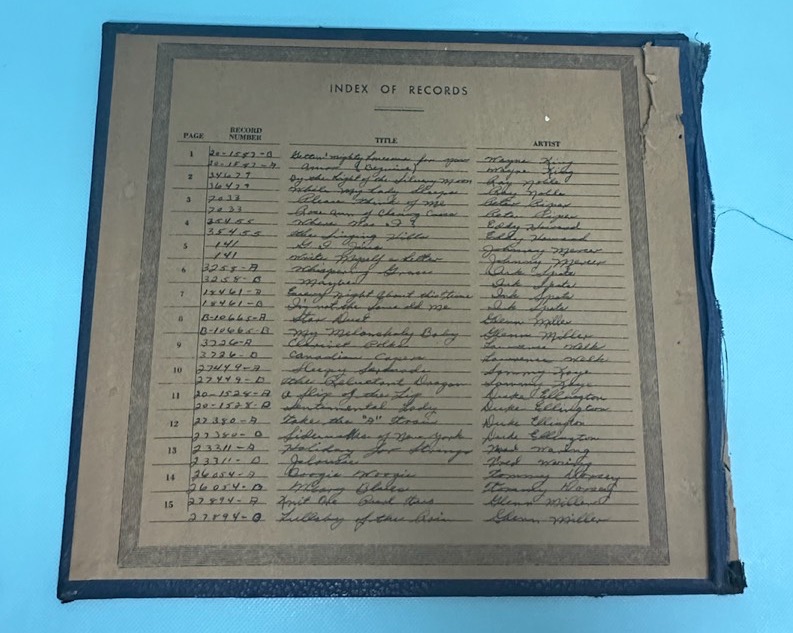 INDEX OF RECORDS
PAGE RECORD NUMBER TITLE ARTIST
1 20-1587-B Gettin' mighty lonesome for you Wayne King
20-1587-A Wayne King
2 36479 By the Light of the Silvery Moon Ray Noble
36479 While My Lady Sleeps Ray Noble
3 7033 Please Think of Me Peter
7033 Rose Ann of Charing Cross Peter
4 35455 Where Was I? Eddy Howard
35455 The Singing Hills Eddy Howard
5 141 G.I. Jive Johnny Mercer
141 Write Myself a Letter Johnny Mercer
6 3258-A Whispering Grass Ink Spots
3258-B Maybe Ink Spots
7 18461-A Every Night About this time Ink Spots
18461-B I'm not the same old Me Ink Spots
8 B-10665-A Star Dust Glenn Miller
B-10665-B My Melancholy Baby Glenn Miller
9 3726-A Clarinet Polka Lawrence Welk
3726-B Canadian Capers Lawrence Welk
10 27449-A Sleepy Serenade Sammy Kaye
27449-B The Reluctant Dragon Sammy Kaye
11 20-1528-A A Slip of the Lip Duke Ellington
20-1528-B Sentimental Lady Duke Ellington
12 27380-A Take the "A" Train Duke Ellington
27380-B Sidewalks of New York Duke Ellington
13 23311-A Holiday for Strings Fred Waring
23311-B Jalousie Fred Waring
14 26054-A Boogie Woogie Tommy Dorsey
26054-B Weary Blues Tommy Dorsey
15 27894-A Knit One Purl Two Glenn Miller
27894-B Lullaby of the Rain Glenn Miller